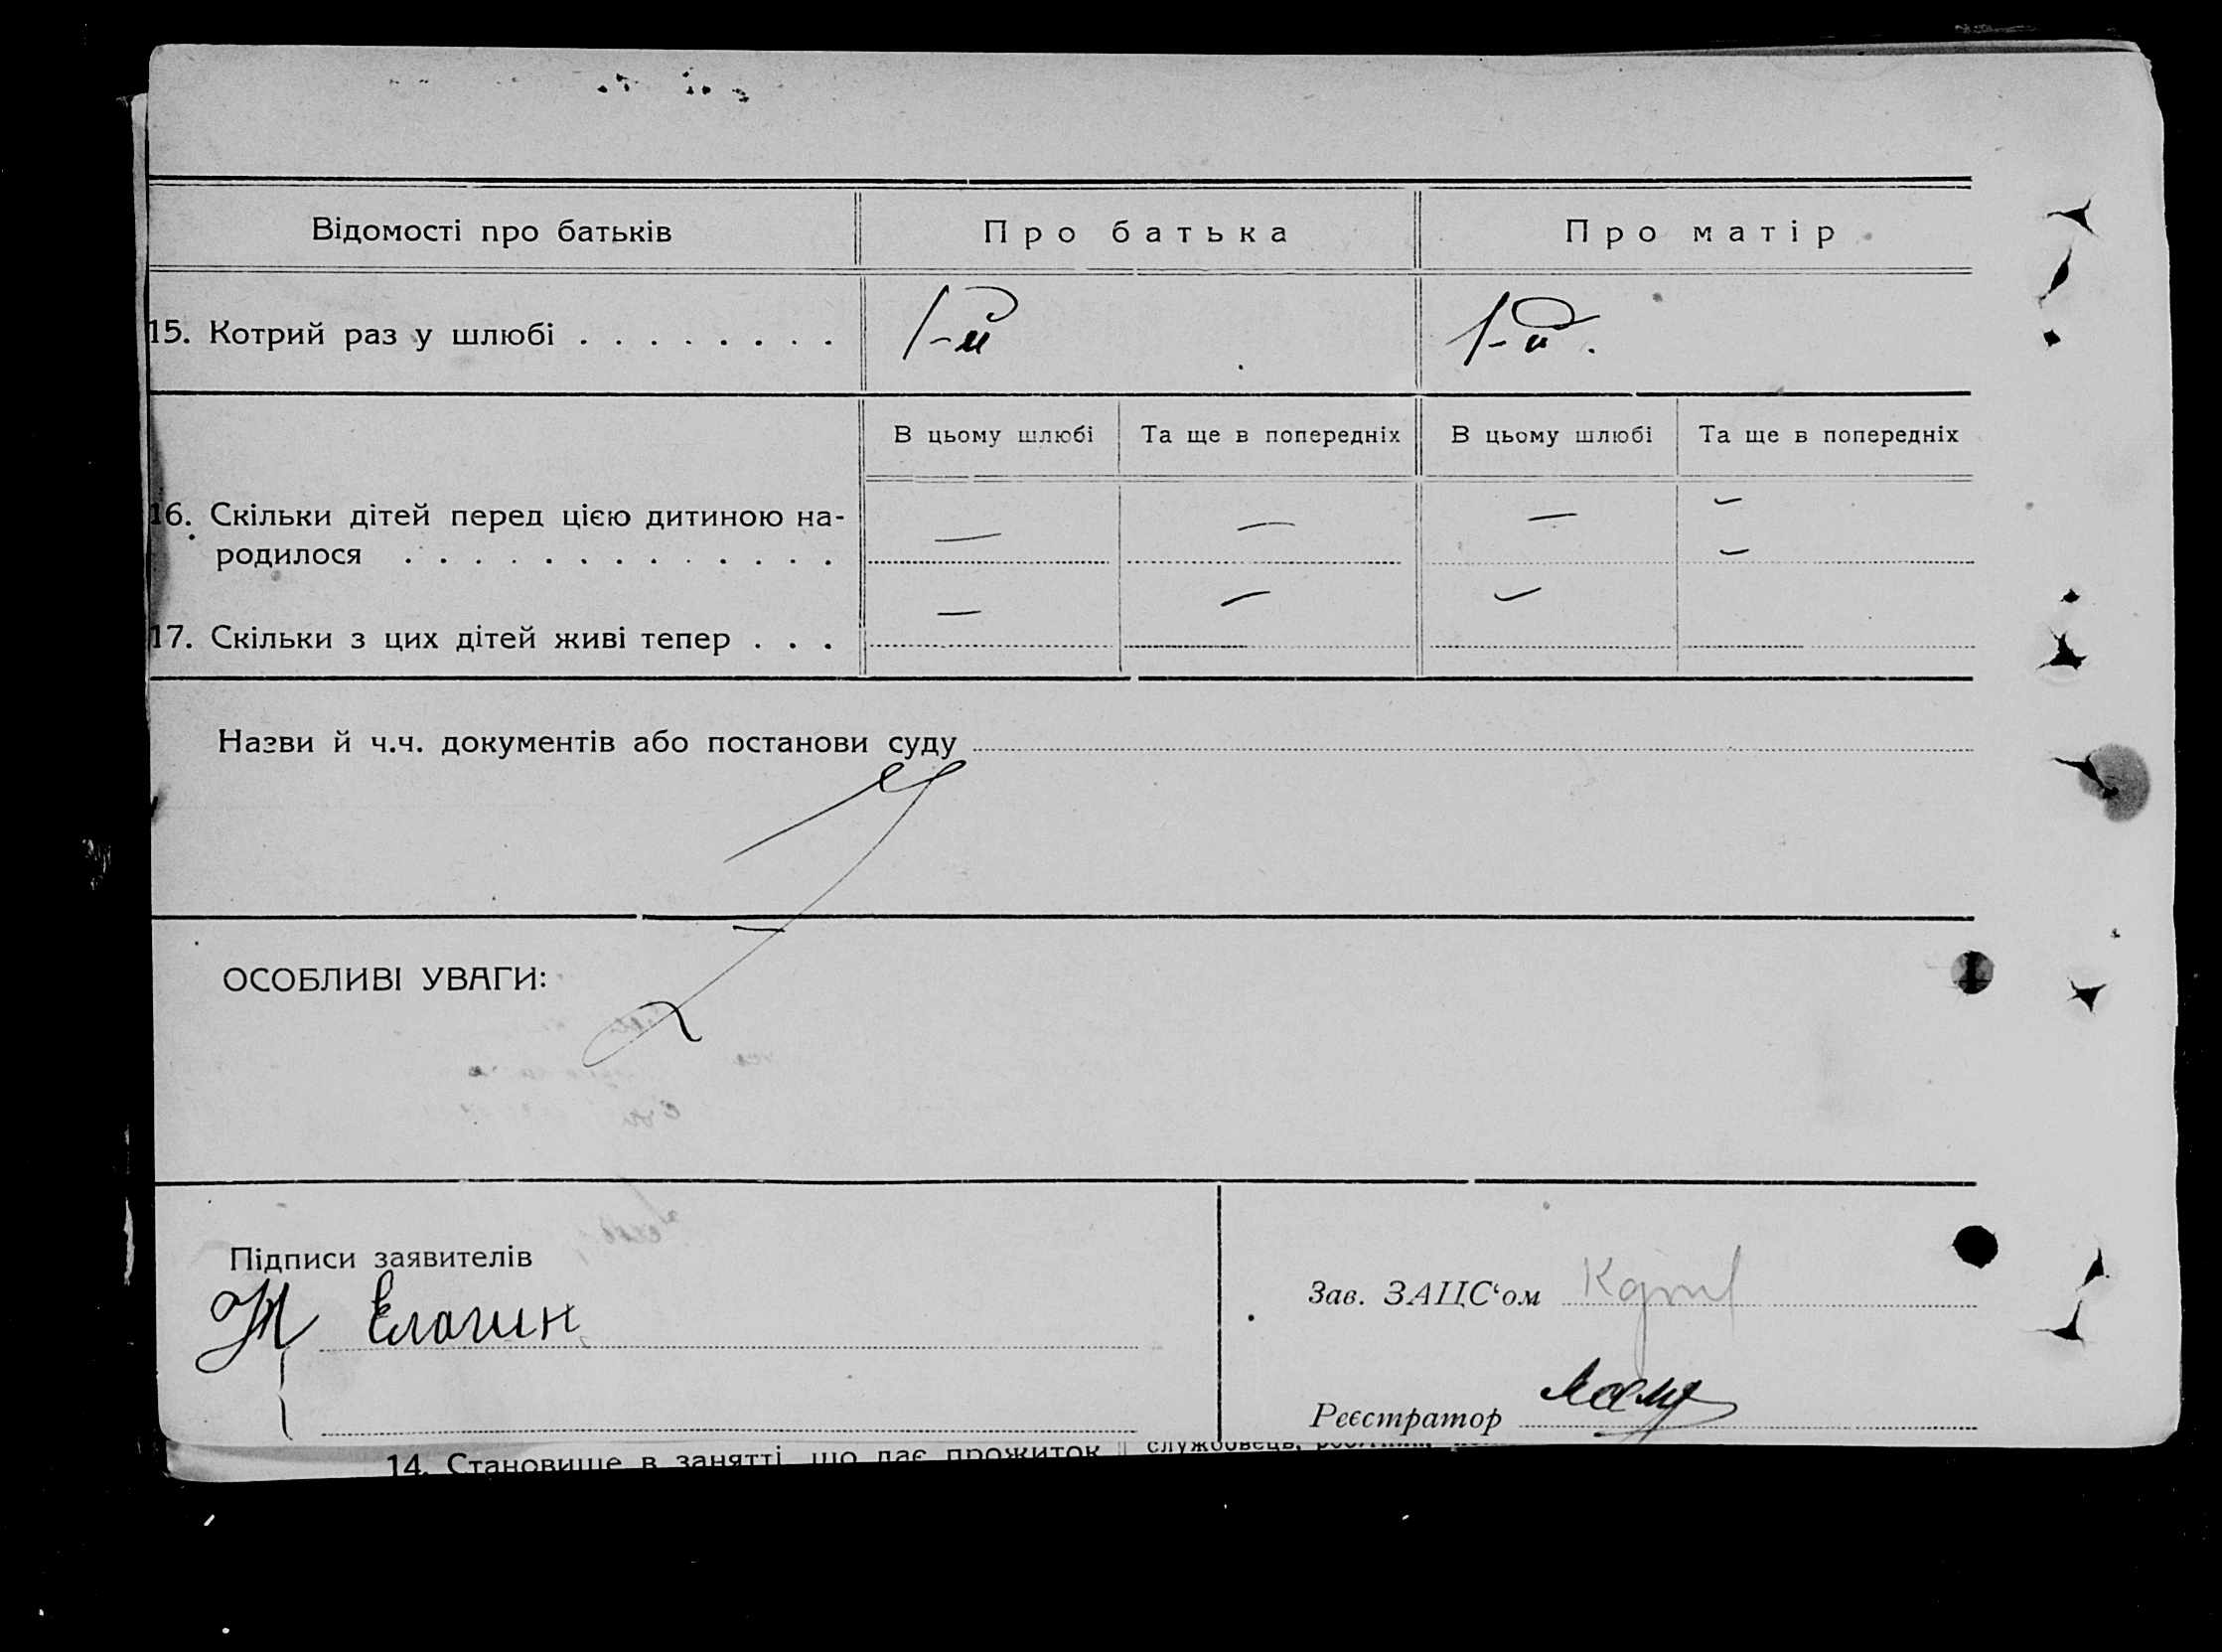 Відомості про батьків
Про батька
Про матір
15. Котрий раз у шлюбі . . . . . . . .
1-й
1-й.
В цьому шлюбі
Та ще в попередніх
В цьому шлюбі
Та ще в попередніх
16. Скільки дітей перед цією дитиною на-
родилося . . . . . . . . . . . . .
— — — —
17. Скільки з цих дітей живі тепер . . .
— — — —
Назви й ч.ч. документів або постанови суду
ОСОБЛИВІ УВАГИ:
Підписи заявителів
Елагин
Зав. ЗАЦС‘ом
Реєстратор
14. Становище в занятті, що дає прожиток
службовець,